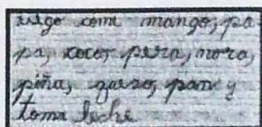 come mango, pa
pa, coco, pera, mora,
piña, queso, pan y
toma leche